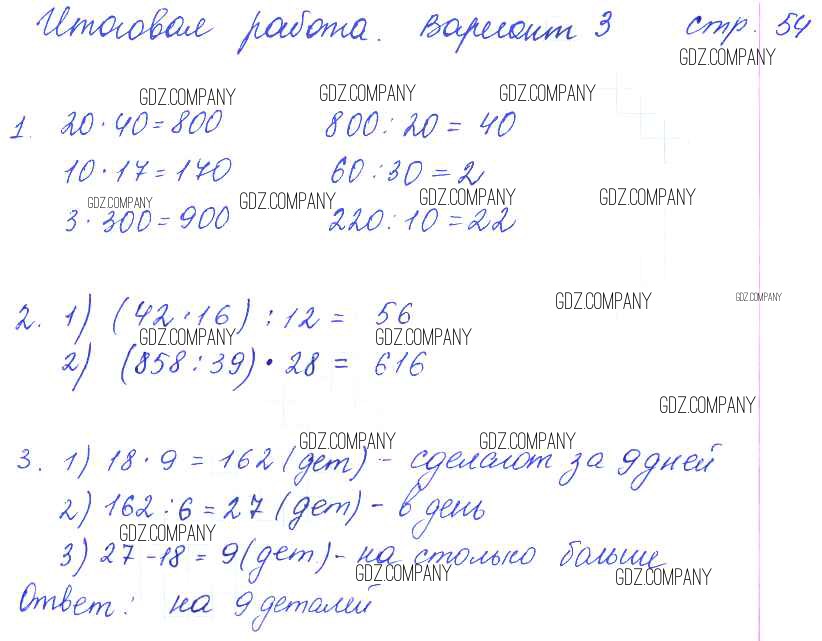 Итоговая работа. Вариант 3 стр. 54
GDZ.COMPANY
GDZ.COMPANY GDZ.COMPANY GDZ.COMPANY
1. 20 · 40 = 800 800 : 20 = 40
10 · 17 = 170 60 : 30 = 2
GDZ.COMPANY GDZ.COMPANY GDZ.COMPANY GDZ.COMPANY
3 · 300 = 900 220 : 10 = 22
GDZ.COMPANY GDZ.COMPANY
2. 1) (42 · 16) : 12 = 56
GDZ.COMPANY GDZ.COMPANY
2) (858 : 39) · 28 = 616
GDZ.COMPANY
GDZ.COMPANY GDZ.COMPANY
3. 1) 18 · 9 = 162 (дет) - сделают за 9 дней
2) 162 : 6 = 27 (дет) - в день
GDZ.COMPANY
3) 27 - 18 = 9 (дет) - на столько больше
GDZ.COMPANY GDZ.COMPANY
Ответ: на 9 деталей